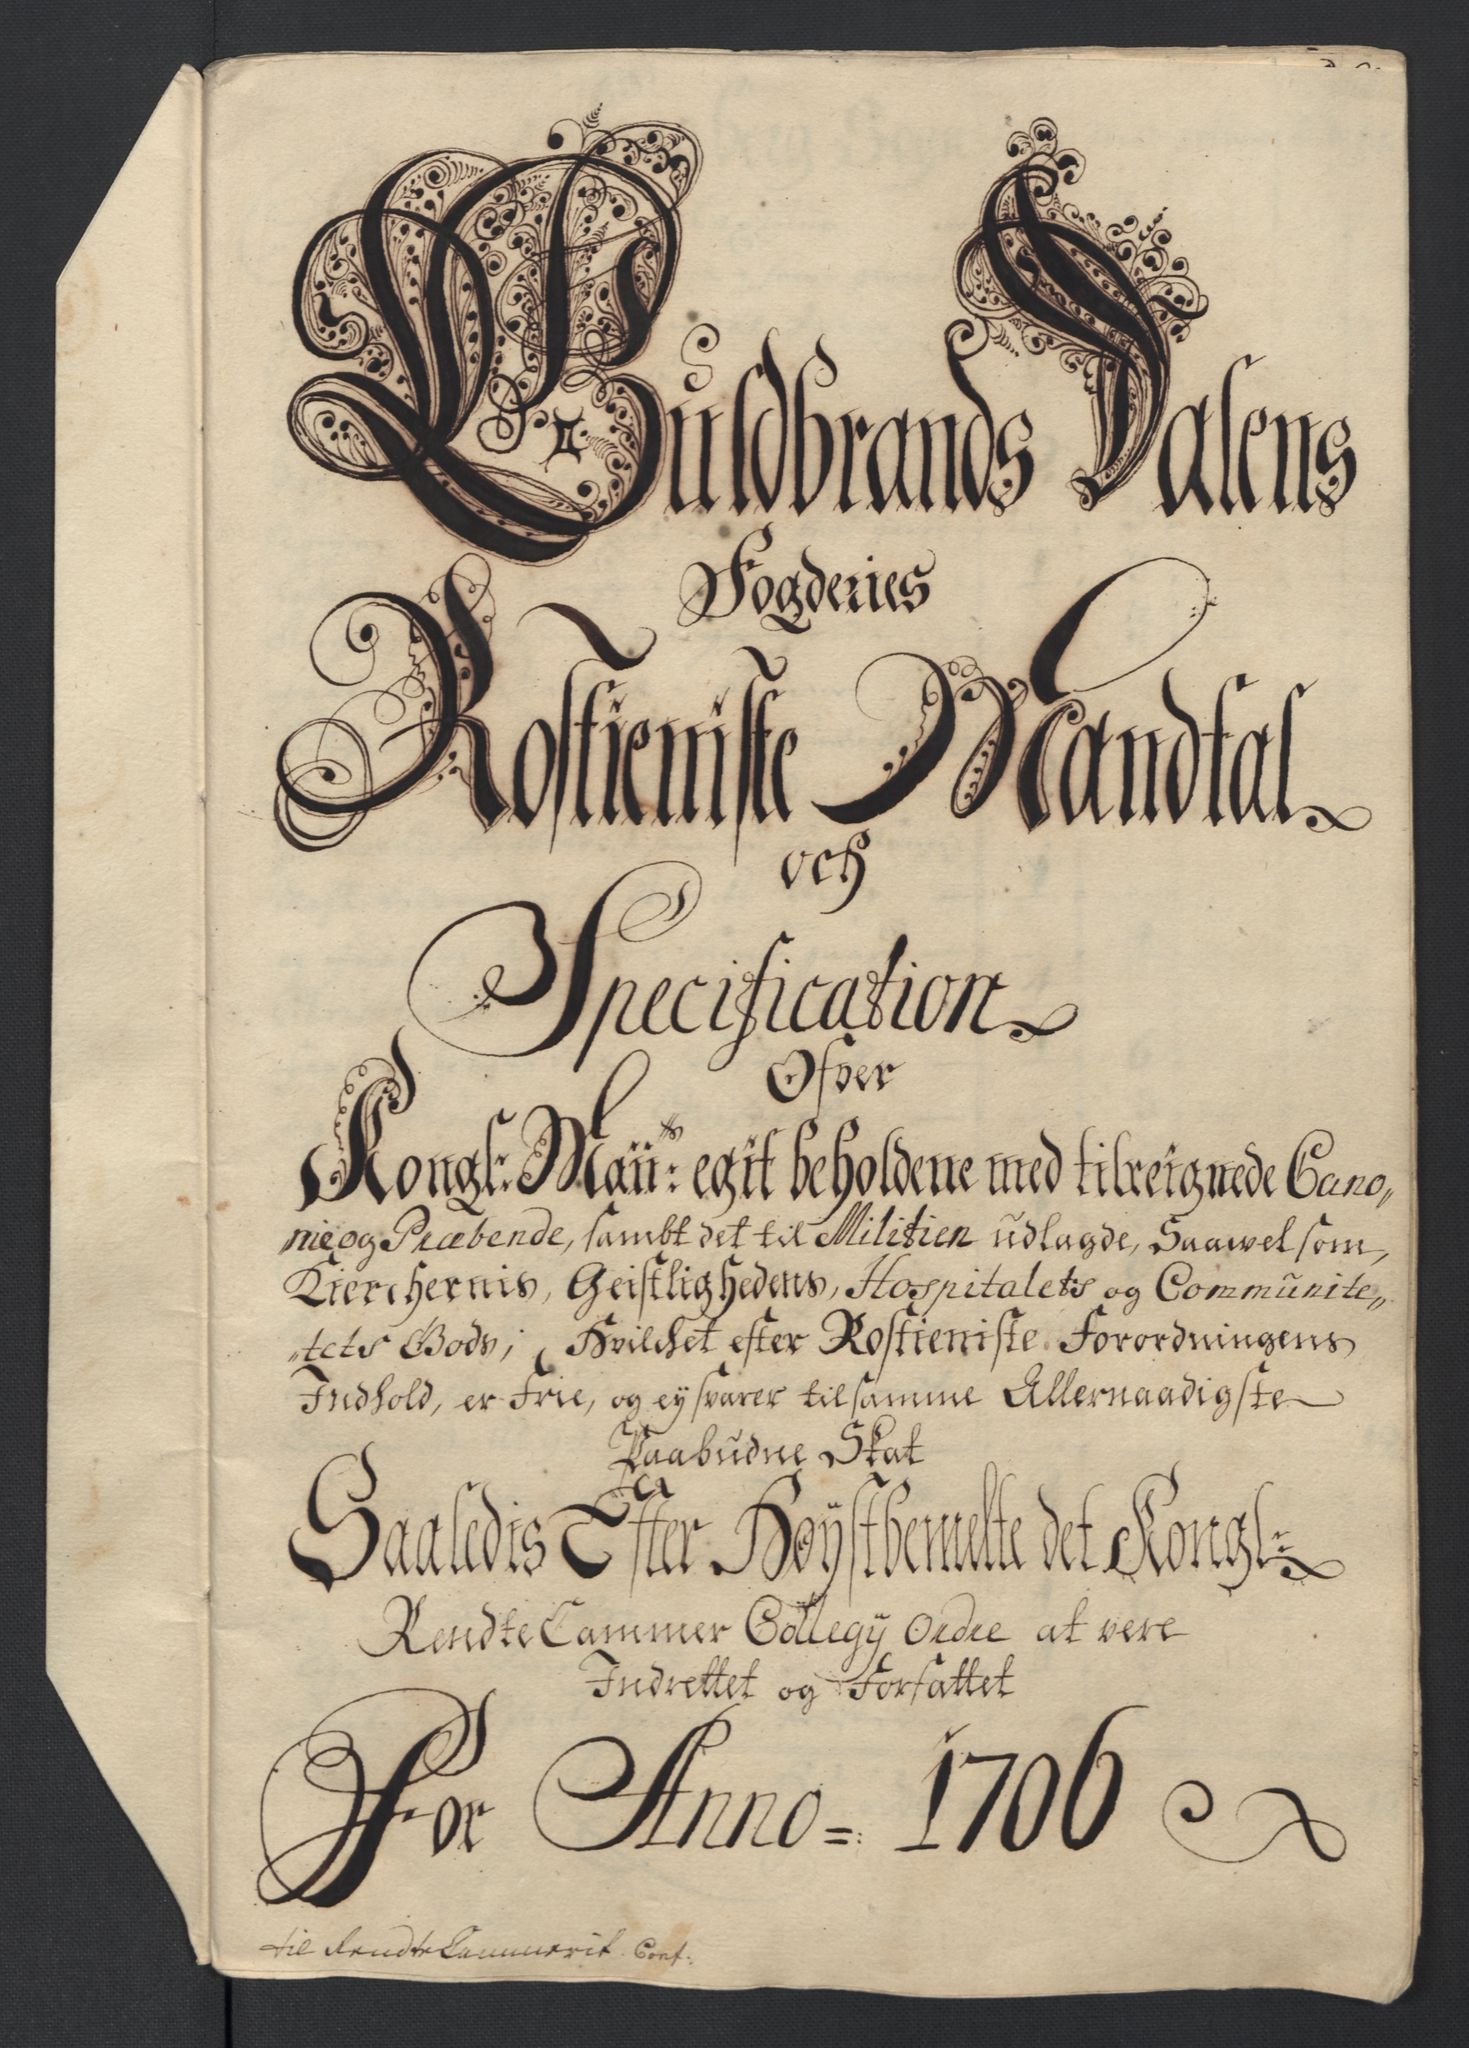 Guldbrands Dalens
Fogderies
Rostieniste Mandtal
och
Specification
Ofver
Kongl: Maÿ:ts egit beholdene med tilreignede Cano„
nie og Præbende, sambt det til Militien udlagde, Saawel som
Kierchernis, Geistlighedens, Hospitalets og Communite„
„tets Gods; Hvilchet efter Rostieniste Forordningens
Indhold, er frie, og ej svarer til samme Allernaadigste
Paabudne Skat
Saaledis Efter Høÿstbemelte det Kongl:
Rendte Cammer Collegÿ Ordre at vere
Indrettet og Forfattet
For Anno =: 1706
til Rendte Cammerit. Cont: